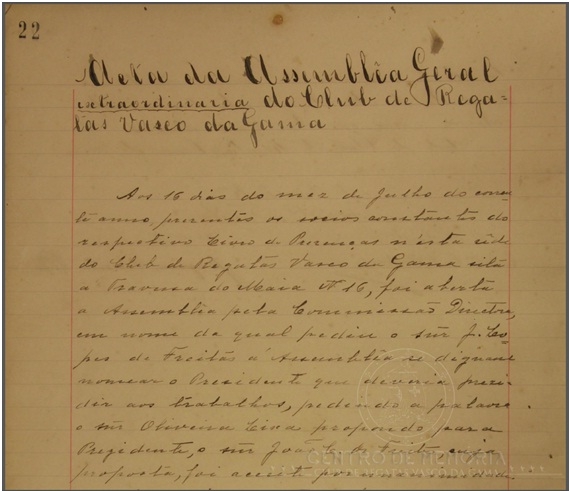 22
Acta da Assembléa Geral
extraordinaria do Club de Rega=
tas Vasco da Gama
Aos 16 dias do mez de Julho do corren-
te anno, presentes os socios constantes do
respectivo Livro de Presenças n'esta séde
do Club de Regatas Vasco da Gama sita
á Travessa do Maia Nº 16, foi aberta
a Assembléa pela Commissão Directora,
em nome da qual pediu o snr J. Lo-
pes de Freitas á Assembléa se dignasse
nomear o Presidente que deveria presi-
dir aos trabalhos, pedindo a palavra
o snr Oliveira propondo para
Presidente, o snr João de Freitas cuja
proposta, foi acceite por unanimidade
CENTRO DE MEMÓRIA